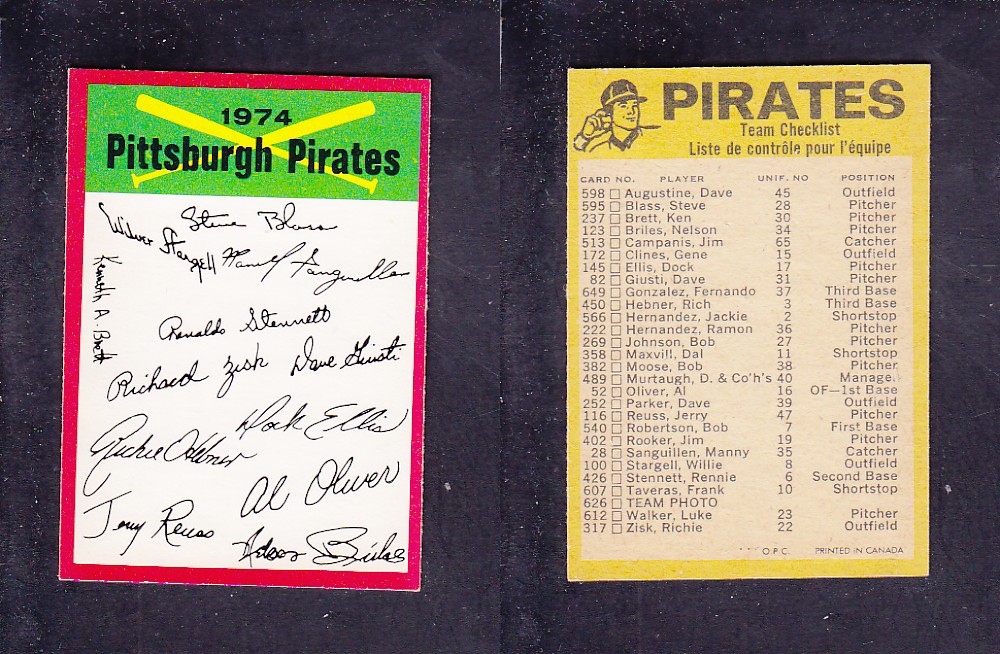 1974
Pittsburgh Pirates
Steve Blass
Wilver Stargell
Manuel Sanguillen
Kenneth A. Brett
Renaldo Stennett
Richard Zisk
Dave Giusti
Dock Ellis
Richie Hebner
Al Oliver
Jerry Reuss
Nelson Briles
PIRATES
Team Checklist
Liste de contrôle pour l'équipe
CARD NO. PLAYER UNIF. NO POSITION
598 Augustine, Dave 45 Outfield
595 Blass, Steve 28 Pitcher
237 Brett, Ken 30 Pitcher
123 Briles, Nelson 34 Pitcher
513 Campanis, Jim 65 Catcher
172 Clines, Gene 15 Outfield
145 Ellis, Dock 17 Pitcher
82 Giusti, Dave 31 Pitcher
649 Gonzalez, Fernando 37 Third Base
450 Hebner, Rich 3 Third Base
566 Hernandez, Jackie 2 Shortstop
222 Hernandez, Ramon 36 Pitcher
269 Johnson, Bob 27 Pitcher
358 Maxvill, Dal 11 Shortstop
382 Moose, Bob 38 Pitcher
489 Murtaugh, D. & Co'h's 40 Manager
52 Oliver, Al 16 OF—1st Base
252 Parker, Dave 39 Outfield
116 Reuss, Jerry 47 Pitcher
540 Robertson, Bob 7 First Base
402 Rooker, Jim 19 Pitcher
28 Sanguillen, Manny 35 Catcher
100 Stargell, Willie 8 Outfield
426 Stennett, Rennie 6 Second Base
607 Taveras, Frank 10 Shortstop
626 TEAM PHOTO
612 Walker, Luke 23 Pitcher
317 Zisk, Richie 22 Outfield
O.P.C. PRINTED IN CANADA